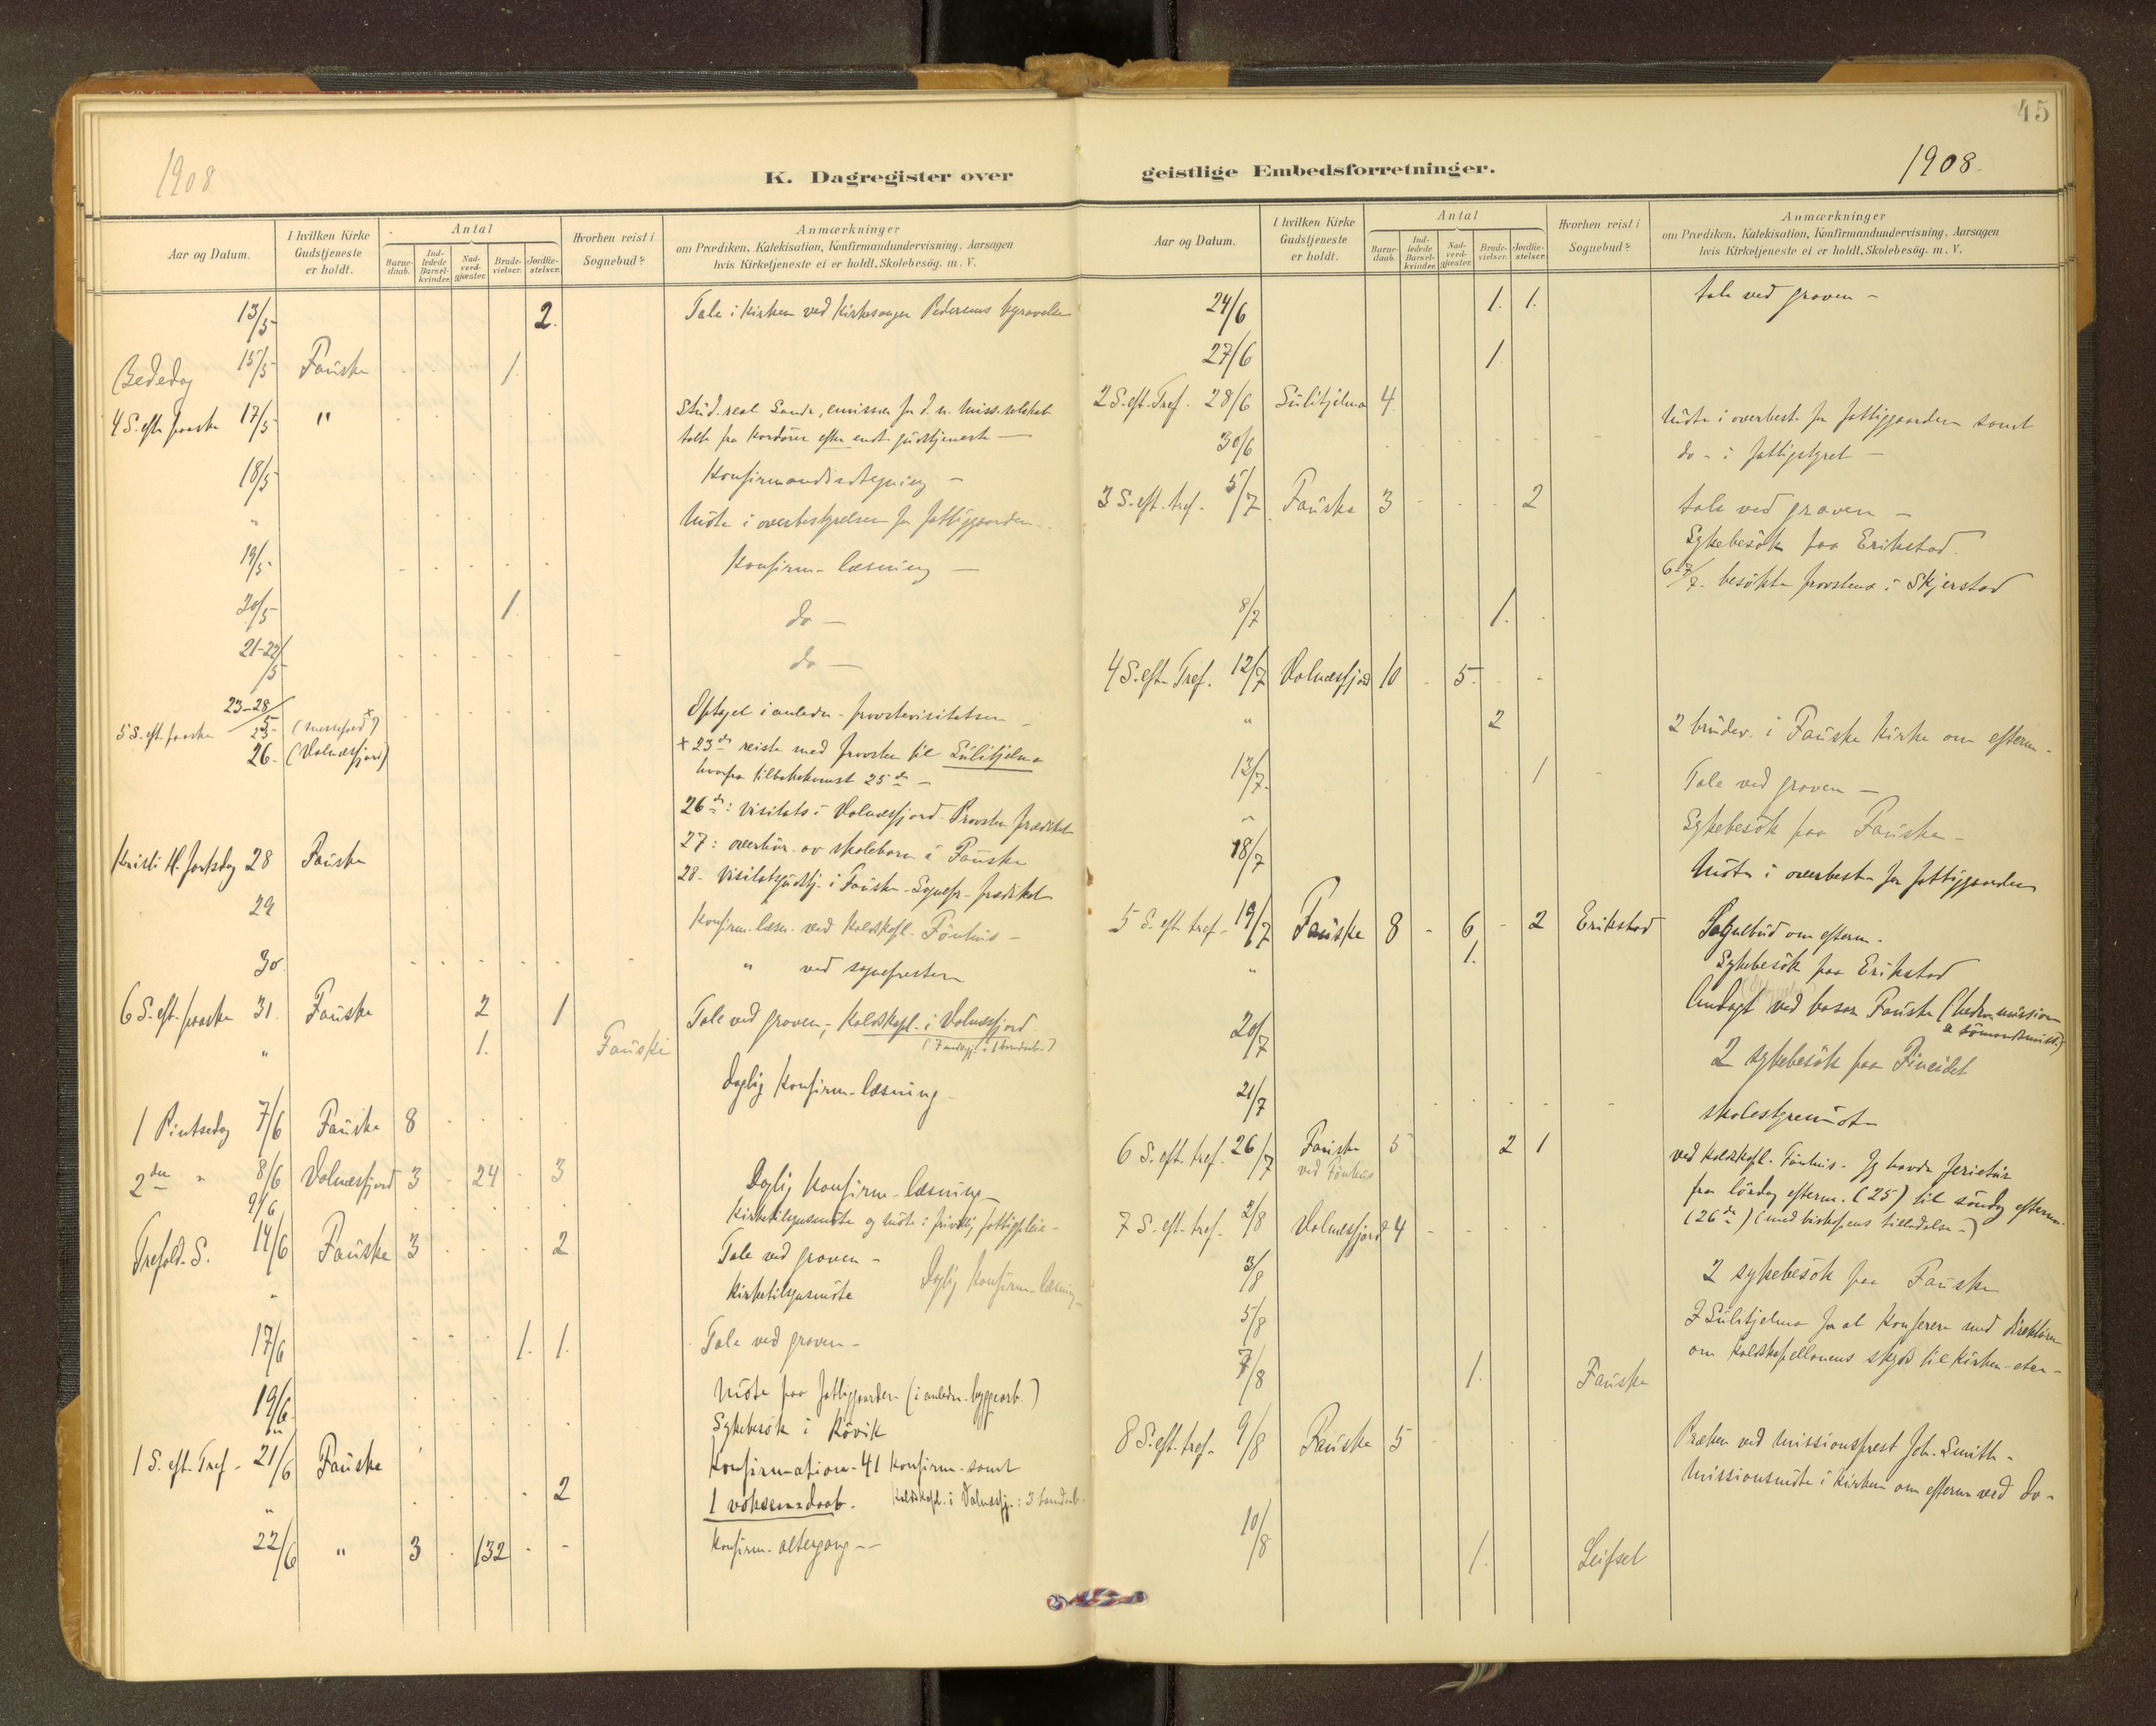 45
1908
K. Dagregister over
Aar og Datum. I hvilken Kirke Gudstjeneste er holdt. Antal Barne-daab. Ind-ledede Barsel-kvinder. Nad-verd-gjæster. Brude-vielser. Jordfæ-stelser. Hvorhen reist i Sognebud? Anmærkninger om Prædiken, Katekisation, Konfirmandundervisning, Aarsagen hvis Kirketjeneste ei er holdt, Skolebesög. m. V.
13/5 2. Tale i kirken ved kirkesanger Pedersens begravelse
Bededag 15/5 Fauske 1.
4 S. eft. paaske 17/5 " Stud. real Sande, emissær for d. n. miss. selskab
talte fra kordøren efter endt gudstjeneste —
18/5 Konfirmandindtegning —
" Møte i overbestyrelsen for fattiggaarden -
19/5 Konfirm- læsning —
20/5 1. do —
21-22/5 do —
23-28/5 Optaget i anledn. provstevisitatsen —
5 S. eft. paaske 25 x 23de reiste med provsten til Sulitjelma
26. (Valnesfjord) hvorfra tilbakekomst 25de —
26de: Visitats i Valnesfjord. Provsten prædiket
27: overhør. av skolebarn i Fauske
Kristi H. fartsdag 28 Fauske 28- Visitatsgudstj. i Fauske - Sognepr. prædiket
29 Konfirm. læsn. ved kaldskapl. Fönhus -
30 " ved sognepresten
6 S. eft. paaske 31. Fauske 2 1 Tale ved graven, - kaldskapl. i Valnesfjord
" 1. Fauske
Daglig konfirm- læsning -
1 Pintsedag 7/6 Fauske 8
2den " 8/6 Valnesfjord 3 24 3 Daglig konfirm- læsning —
9/6 Kirketilsynsmøte og møte i frivillig fattigpleie -
Trefold. S. 14/6 Fauske 3 2 Tale ved graven -
" Kirketilsynsmøte Daglig konfirm- læsning -
17/6 1. 1. Tale ved graven -
19/6 Møte paa fattiggaarden (i anledn. byggearb.)
" Sykebesök i Rövik
1 S. eft. Tref - 21/6 Fauske Konfirmation - 41 konfirm. samt
" 2 1 voksendaab. Kaldskapl. i Valnesfj.: 3 barnedaab.
22/6 " 3 132 Konfirm- altergang --
1908.
geistlige Embedsforretninger.
Aar og Datum. I hvilken Kirke Gudstjeneste er holdt. Antal Barne-daab. Ind-ledede Barsel-kvinder. Nad-verd-gjæster. Brude-vielser. Jordfæ-stelser. Hvorhen reist i Sognebud? Anmærkninger om Prædiken, Katekisation, Konfirmandundervisning, Aarsagen hvis Kirketjeneste ei er holdt, Skolebesög. m. V.
24/6 1. 1. tale ved graven -
27/6 1.
2 S. eft. Tref. 28/6 Sulitjelma 4.
30/6 Møte i overbest. for fattiggaarden samt
do - i fattigstyret —
3 S. eft. tref. 5/7 Fauske 3 2 tale ved graven —
Sykebesök paa Erikstad.
6-7/7. besökte provstens i Skjerstad
8/7 1.
4 S. eft. Tref. 12/7 Valnesfjord 10 5.
" 2 2 brudev. i Fauske kirke om efterm -
13/7. 1 Tale ved graven —
" Sykebesök paa Fauske -
18/7 Møte i overbest. for fattiggaarden
5 S. eft. tref - 19/7 Fauske 8 - 6 - 2 Erikstad Sognebud om efterm.
" 1. Sykebesök paa Erikstad
Andagt ved basar Fauske (hedn. mission
& sömandsmiss.)
20/7 2 sykebesök paa Fineidet
21/7 skolestyremøte
6 S. eft. tref. 26/7 Fauske 5 2 1 ved kaldskapl. Fönhus. Jeg havde ferietur
ved Fönhus fra lördag efterm. (25) til söndag efterm.
(26de) (med biskopens tilladelse -)
7 S. eft. tref. 2/8 Valnesfjord 4
3/8 2 sykebesök paa Fauske
5/8 I Sulitjelma for at konferere med direktören
om kaldskapellanens skyds til kirken - etc -
7/8 1. Fauske
8 S. eft. tref - 9/8 Fauske 5 Præken ved missionsprest Joh. Smith -
Missionsmøte i kirken om efterm. ved do -
10/8 1. Leifset